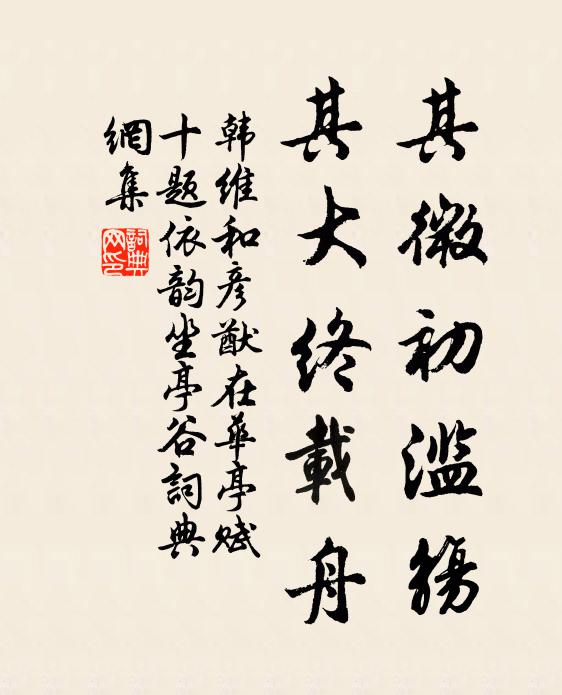 其微初滥觞
其大终載舟
韩维和彦猷在華亭赋
十题依韵坐亭谷詞典
網集
詞典网印